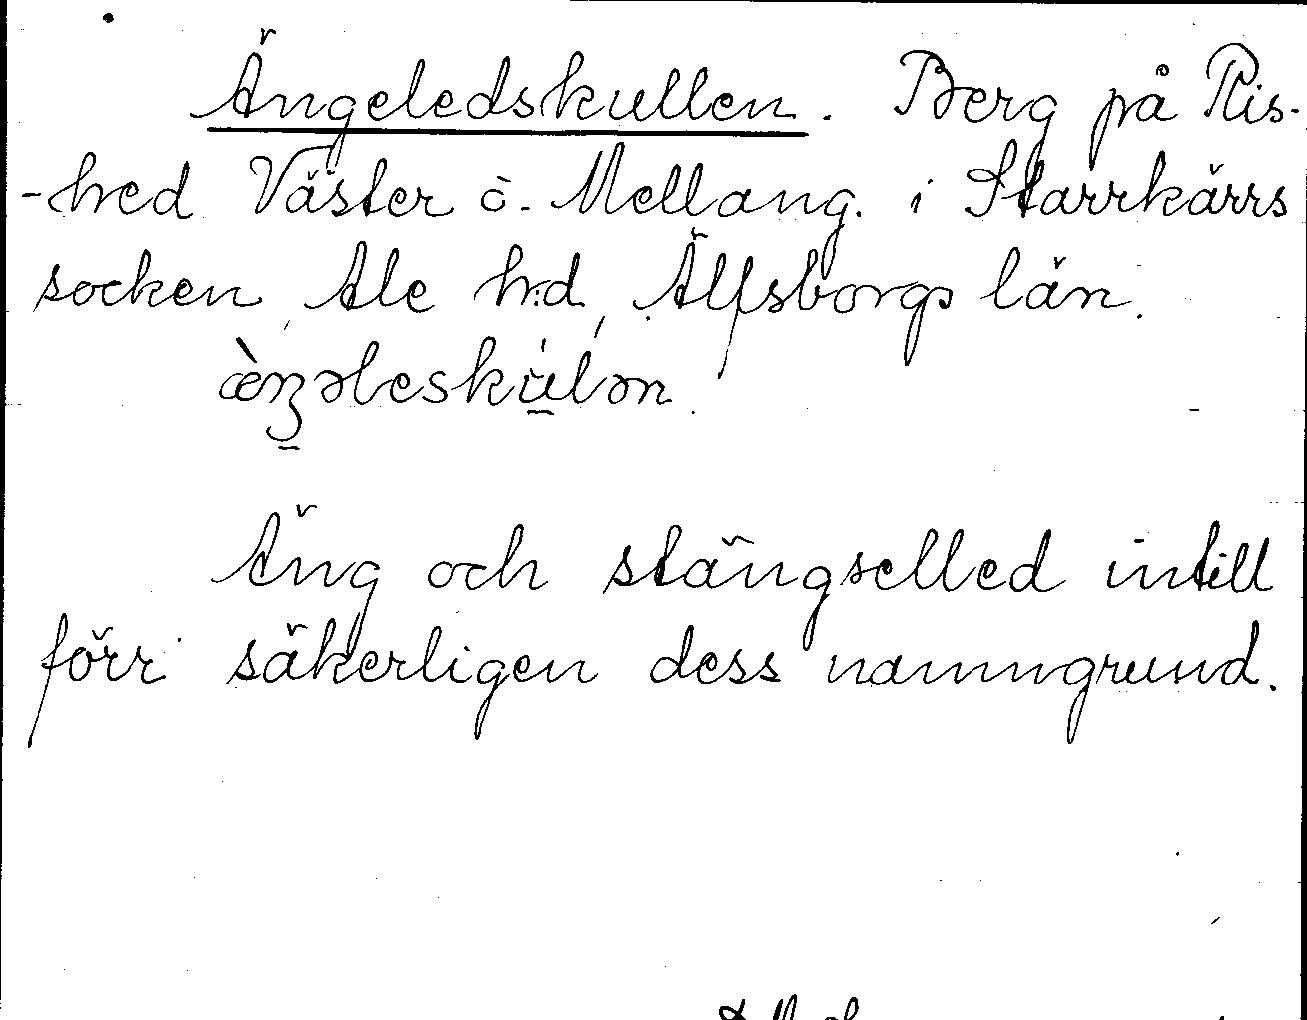 Ängeledskullen. Berg på Ris-
-hed Väster o. Mellang. i Starrkärrs
socken, Ale h:d, Älfsborgs län.
æ̀nʒəleskulən.
Äng och stängselled intill
förr säkerligen dess namngrund.